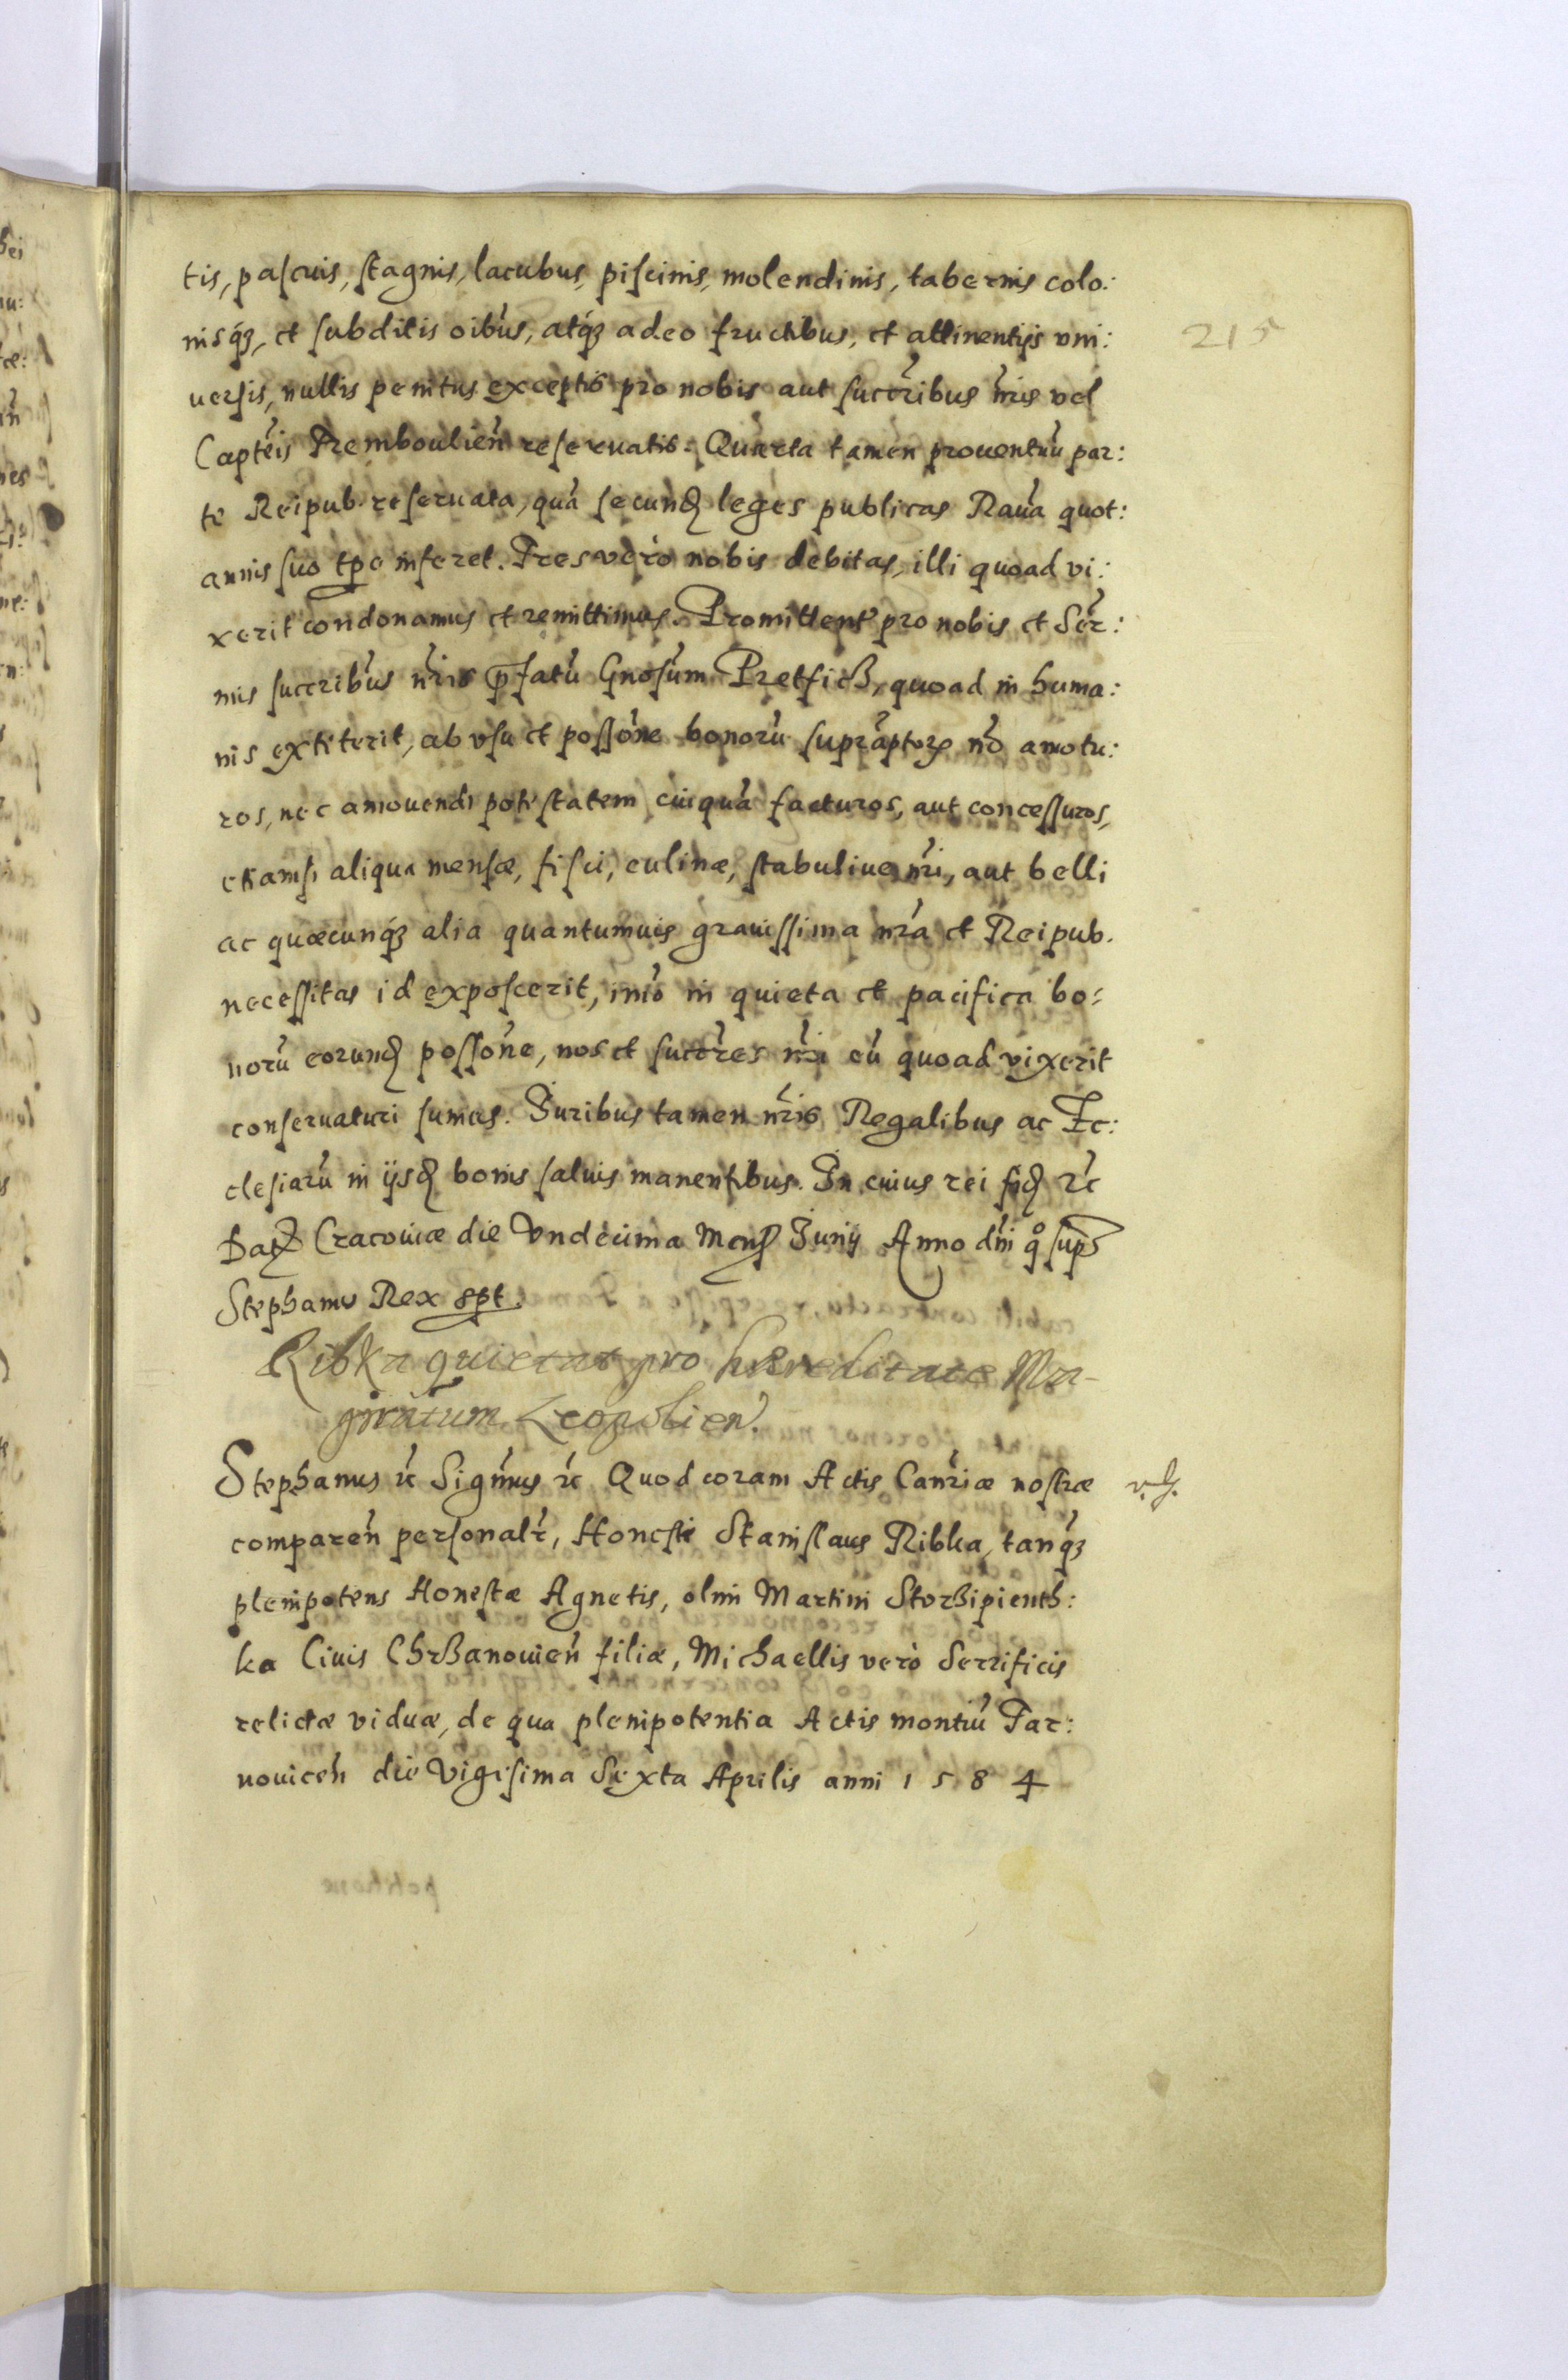 tis, pascuis, stagnis, lacubus, piscinis, molendinis, tabernis colo:
nisq́ꝫ, et subditis oib́us, atq́ꝫ adeo fructibus, et attinentijs vni:
215
uersis, nullis penitus exceptis pro nobis aut succr̃ibus nr̃is vel
Captẽis Trembouliẽn reseruatis. Quarta tamen prouentuũ par:
te Reipub. reseruata, quã secund̨ leges publicas Rauã quot:
annis suo tꝑe inferet. Tres verò nobis debitas, illi quoad vi:
xerit condonamus et remittimus. Promittent̃ pro nobis et Ser̃:
mis succribũs nr̃is p̃fatũ Gnosũm Pretficz, quoad in huma:
nis extiterit, ab vsu et possõne bonorũ suprãptorꝝ nõ amotu:
ros, nec amouendi potestatem cuiquã facturos, aut concessuros,
etiamsi aliqua mensæ, fisci, culinæ, stabuliue nr̃i, aut belli
ac quæcunq́ꝫ alia quantumuis grauissima nr̃a et Reipub.
necessitas id exposcerit, imò in quieta et pacifica bo:
norũ eorund̨ possõne, nos et succr̃es nr̃i eũ quoad vixerit
conseruaturi sumus. Juribus tamen nr̃is Regalibus ac Ec:
clesiarũ in ijsd̨ bonis saluis manentibus. In cuius rei fid̨ ꝛc̃
Datꝫ Cracouiæ die Vndecima Mens̨ Junij Anno dñi q̊ sup̃s
Stephanus Rex sp̃t.
Ribka quietat pro hæreditate Ma-
giratum Leopolien̄.
Stephanus ꝛc̃ Sigñmus ꝛc̃ Quod coram Actis Canr̃iæ nostræ
v. s.
comparẽn personalr̃, Honesti Stanislaus Ribka, tanq́ꝫ
plenipotens Honestæ Agnetis, olim Martini Storzipienth:
ka Ciuis Chrzanouiẽn filiæ, Michaellis verò Serrificis
relictæ viduæ, de qua plenipotentia Actis montiũ Tar:
nouicẽn die Vigesima Sexta Aprilis anni 1584